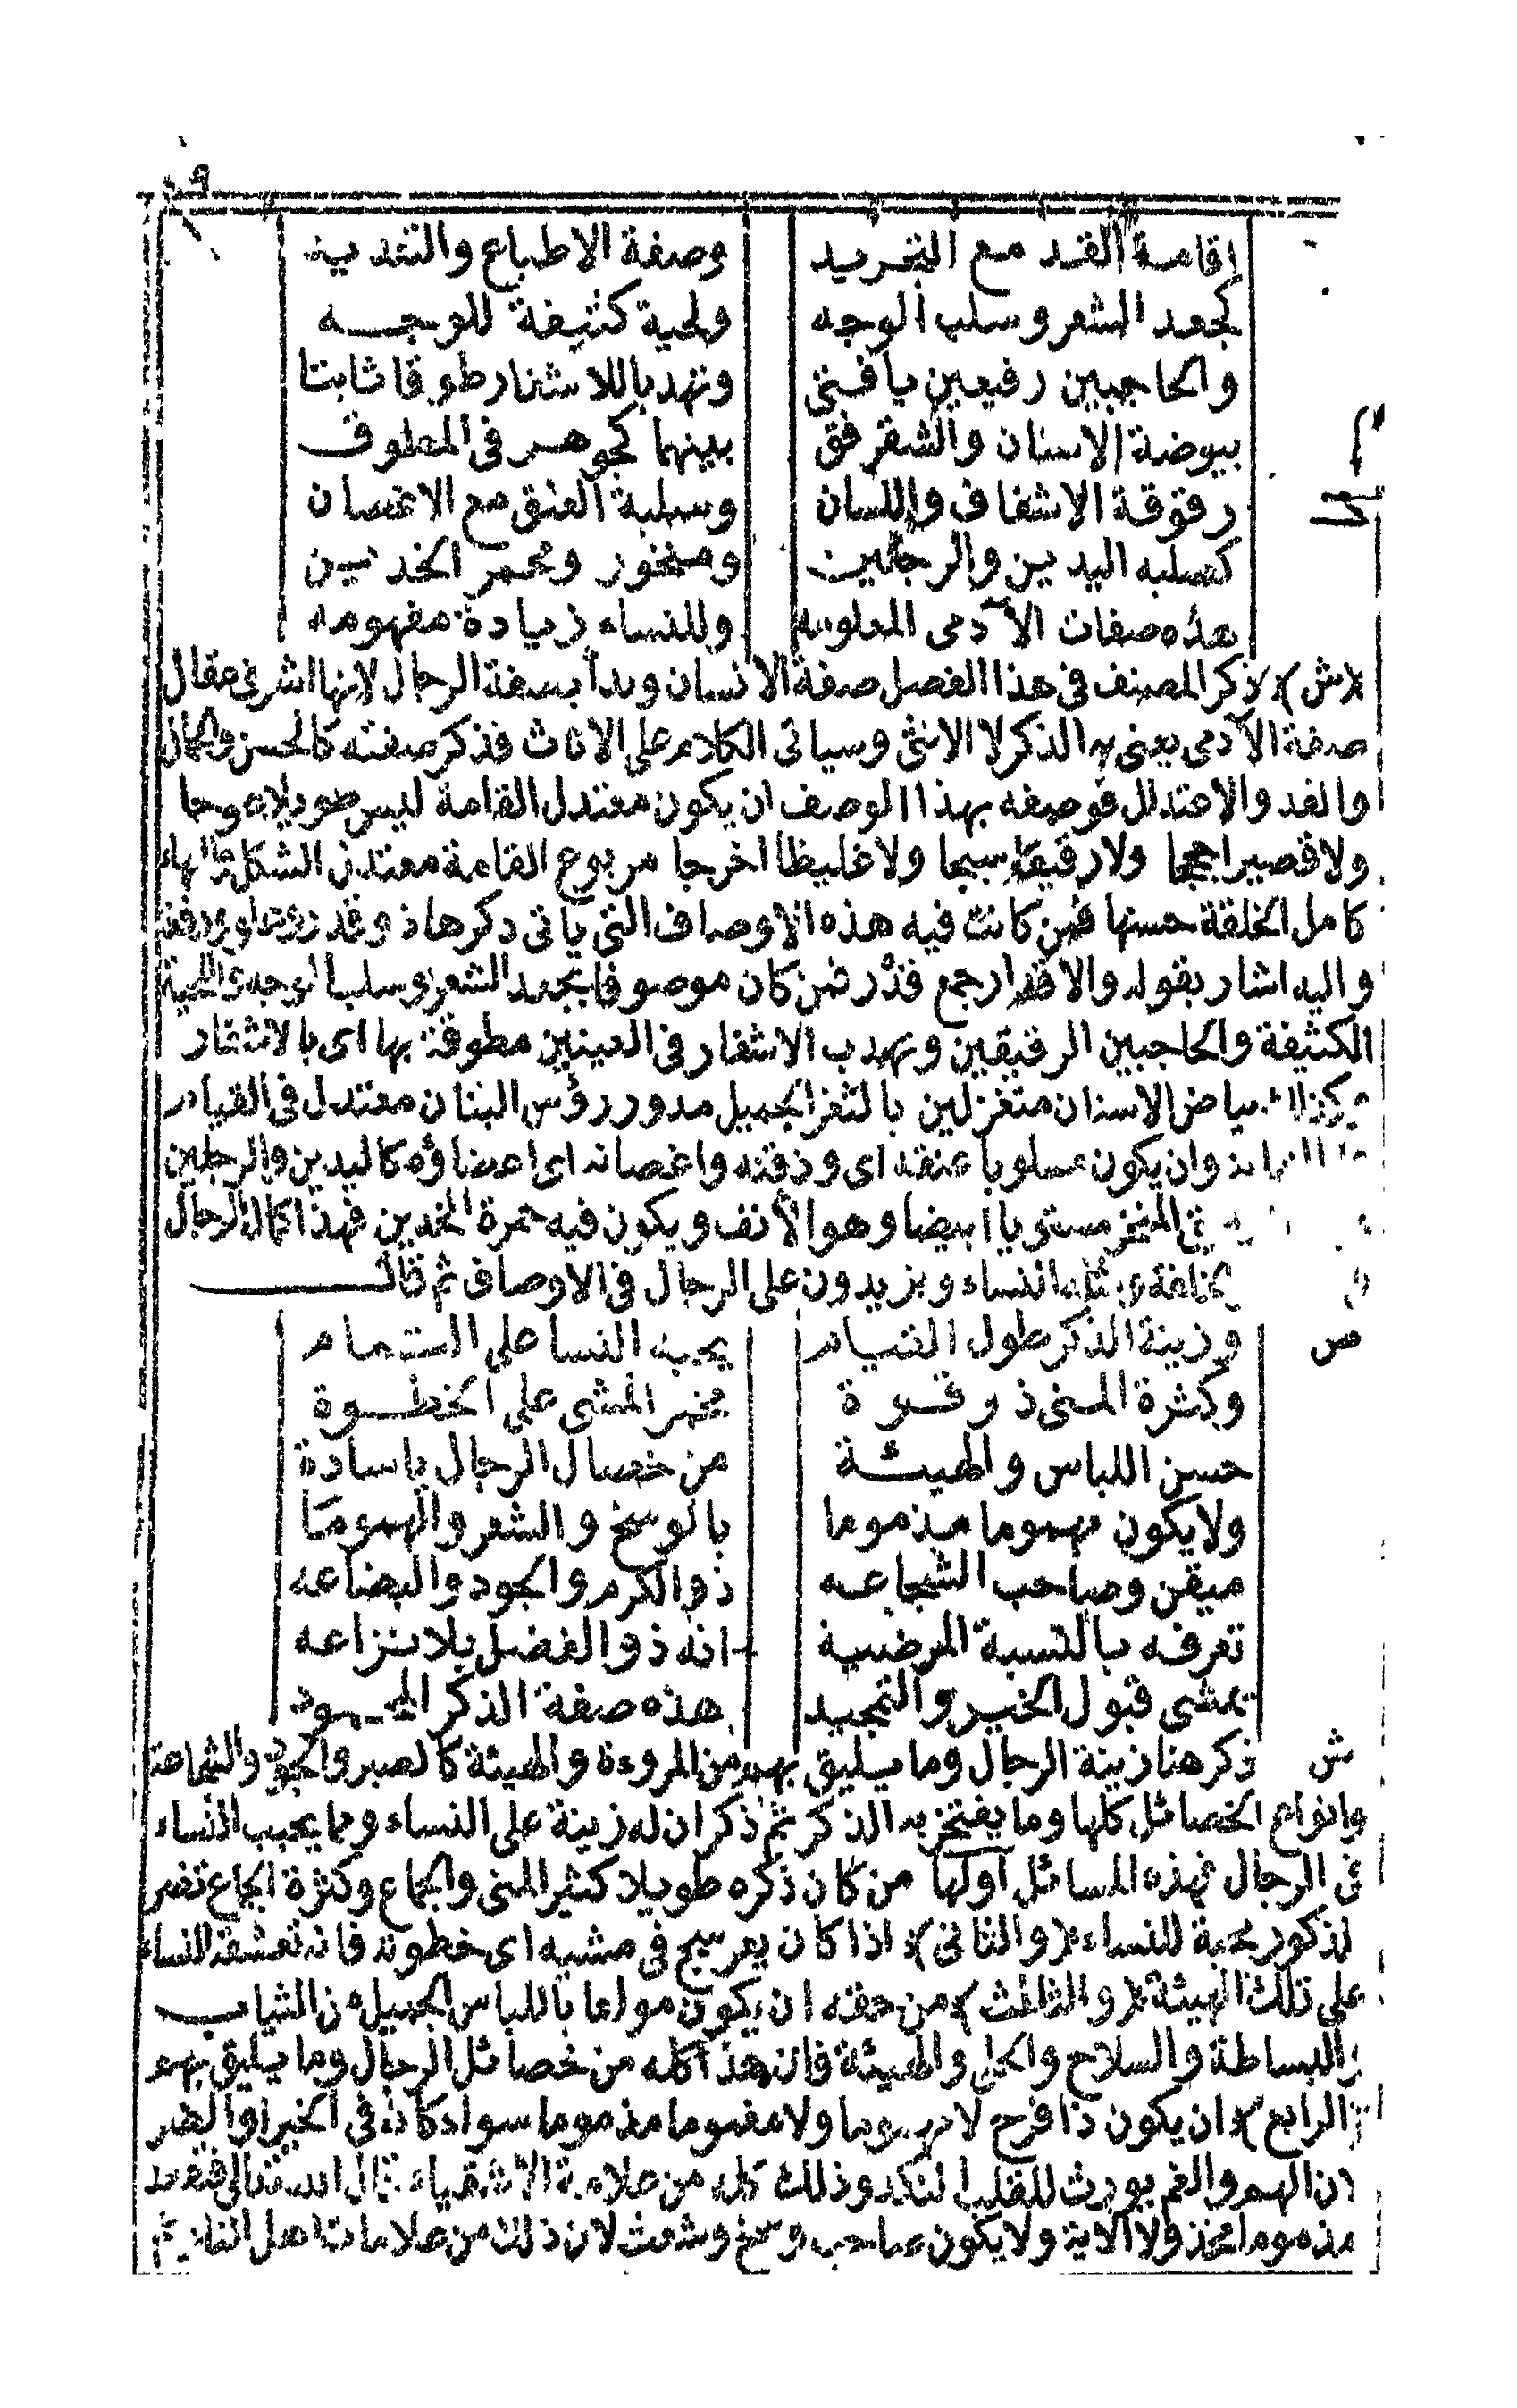 ٥٩
إقامة القد مع التجريد وصفة الاطباع والتقديد
كجعد الشعر وسلب الوجه ولحية كثيفة للوجه
والحاجبين رفيعين يا فتى وتهد بالاشفار طوقا ثابتا
بيوضة الاسنان والشقر فق بينهما كجوهر فى المطوف
رقوقة الاشفاف واللسان وسلبة العنق مع الاغصان
كصلبه اليدين والرجلين ومنخور ومحمر الخدين
هذه صفات الآدمى المعلومه وللنساء زيادة مفهومه
(ش) ذكر المصنف فى هذا الفصل صفة الانسان وبدأ بصفة الرجال لانها اشرف فقال
صفة الآدمى يعنى به الذكر لا الانثى وسياتى الكلام على الاناث فذكر صفته كالحسن والجمال
والقد والاعتدال فوصفه بهذا الوصف ان يكون معتدل القامة ليس طويلا
ولا قصيرا ولا رقيقا ولا غليظا اخرجا مربوع القامة معتدل الشكل
كامل الخلقة حسنها فمن كانت فيه هذه الاوصاف التى ياتى ذكرها ذو قد
واليه اشار بقوله والاقدار جمع قدر فمن كان موصوفا بجعد الشعر وسلب الوجه واللحية
الكثيفة والحاجبين الرقيقين وتهدب الاشفار فى العينين مطوقة بها اى بالاشفار
بياض الاسنان متغزلين بالثغر الجميل مدور رؤس البنان معتدل فى القيام
وان يكون مسلوبا عنقه اى وذقنه واغصانه اى اعضاؤه كاليدين والرجلين
المنخر مستويا ايضا وهو الأنف ويكون فيه حمرة الخدين فهذا كمال الرجال
النساء ويزيدون على الرجال فى الاوصاف ثم قال
ص وزينة الذكر طول القيام يحبه النسا على التمام
وكثرة المنى ذو قوة مخمر المشى على الخطوة
حسن اللباس والهيئة من خصال الرجال ياسادة
ولا يكون مهموما مذموما بالوسخ والشعر والهموما
ميقن وصاحب الشجاعه ذو الكرم والجود والبضاعه
تعرفه بالنسبة المرضية انه ذو الفضل بلا نزاعه
تمشى قبول الخير والتمجيد هذه صفة الذكر
ش ذكر هنا زينة الرجال وما يليق بهم من المروءة والهيئة كالصبر والجود والشجاعة
وانواع الخصائل كلها وما يفتخر به الذكر ثم ذكر ان له زينة على النساء ومما يحبب النساء
فى الرجال فهذه المسائل اولها من كان ذكره طويلا كثير المنى والجماع وكثرة الجماع
لذكور محبة للنساء (والثانى) اذا كان فى مشيه اى خطوته فانه تعشقه النساء
على تلك الهيئة (والثالث) من حقه ان يكون مولعا باللباس الجميل من الثياب
والبساطة والسلاح والحلى والهيئة فان هذا كله من خصائل الرجال وما يليق بهم
(الرابع) ان يكون ذا فرح لا مهموما ولا مغموما مذموما سواء كان فى الخير او الضر
لان الهم والغم يورث للقلب النكد وذلك كله من علامة الاشقياء قال الله تعالى فتقعد
مذموما مخذولا الاية ولا يكون صاحب وسخ وشعث لان ذلك من علامات اهل